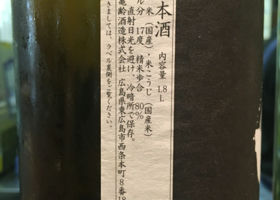 本酒
内容量 1.8L
米（国産）、米こうじ（国産米）
ル分 17度 精米歩合 80%
直射日光を避け、冷暗所で保存。
亀齢酒造株式会社 広島県東広島市西条本町8番18
きましては、ラベル裏側をご覧ください。